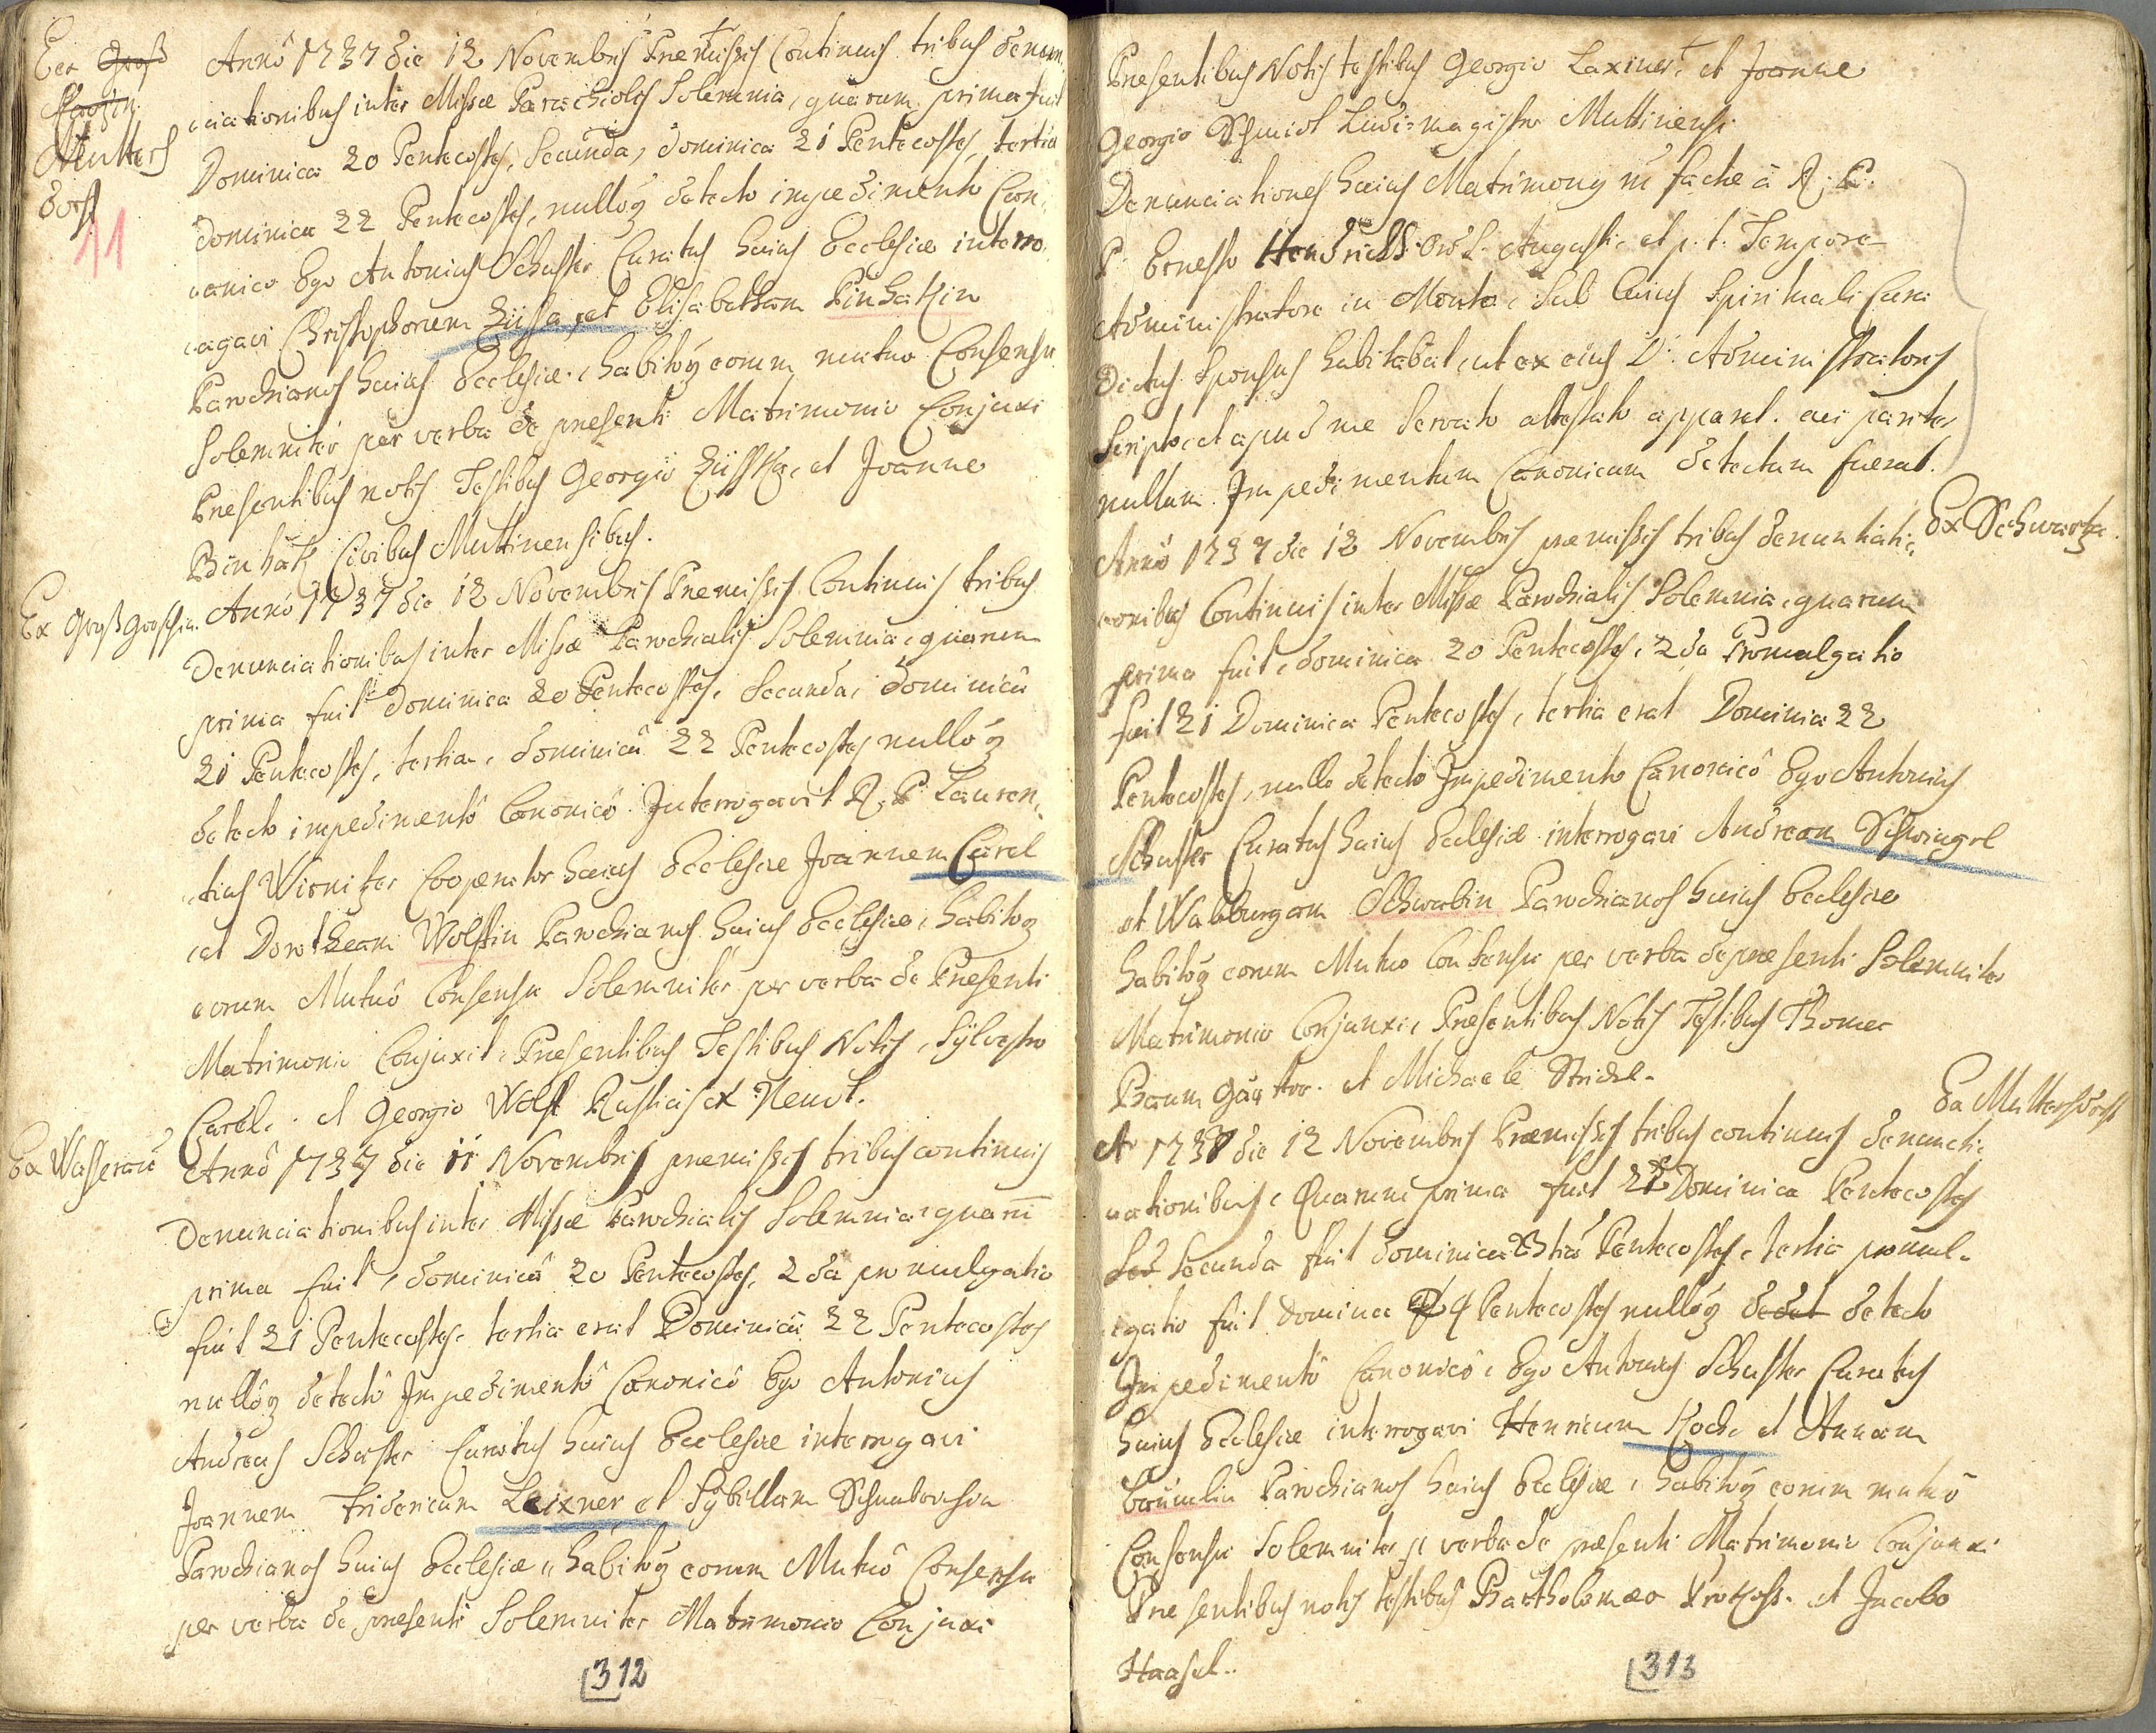 Ex Groß
Muttersdorf
11
Anno 1737 die 12 Novembris Premissis Continuis tribus denun,
ciationibus inter Missæ Parochiolis Solemnia, quarum prima fuit
Dominica 20 Pentecostes, Secunda, dominica 21 Pentecostes, tertia
Dominica 22 Pentecostes, nulloq detecto impedimento Can,
onico Ego Antonius Schuster Curatus huius Ecclesiæ interro,
,agavi Christophorum Züssa, et Elisabetham Pinhatzin
Parochianos huius Ecclesiæ, habitoq eorum mutuo Consensu
Solemniter per verba de presenti Matrimonio Conjuxi
Presentibus notis Testibus Georgio Züsska, et Joanne
Binhatz Civibus Muttinensibus.
Ex Großgorschin
Anno 1737 die 12 Novembris Premissis Continuis tribus
Denunciationibus inter Missæ Parochialis Solemnia, quarum
prima fuit Dominica 20 Pentecostes, Secunda, dominicâ
21 Pentecostes, tertia, dominicâ 22 Pentecostes nulloq
detecto impedimentô Canonicô Interrogavit R. P. Lauren,
,tius Wirnitzer Cooperator huius Ecclesiæ Joannem Carel
et Dorotheam Wolfin Parochianos huius Ecclesiæ, habitoq
eorum Mutuô Consensu Solemniter per verba de Presenti
Matrimoni Conjuxit, Presentibus Testibus Notis, Sylvestro
Carel. et Georgio Wolf Rusticis ex Neud.
Ex Wasserau
Annô 1737 die 11 Novembris premissis tribus continuis
Denunciationibus inter Missæ Parochialis Solemnia, quarū
prima fuit, dominicâ 20 Pentecostes, 2da promulgatio
fuit 21 Pentecostes, tertia erat Dominicâ 22 Pentecostes
nullôq detectô Impedimentô Canonicô Ego Antonius
Andreas Schuster Curatus huius Ecclesiæ interrogavi
Joannem Fridericum Leixner et Sybillam
Parochianos huius Ecclesiæ, habitoq eorum Mutuô Consensu
per verba de presenti Solemniter Matrimonio Conjuxi
312
Presentibus Notis testibus Georgio Laxner, et Joanne
Georgio Schmidt Ludi-magister Muttinensi
Denunciationes huius Matrimony in facte â R. P.
P. Ernesto Hendrich Ord. S. Augusti, et p. t. Tempore
Administratore in Monte, Sub Cuius Spirituali Cura
Dictus Sponsus habitabat, ut ex eius D. Administratoris
Scripto, et apud me Servato attestato apparet. ac pariter
nullum Impedimentum Canonicum detectum fuerat.
Ex Schwartz.
Annô 1737 die 12 Novembris premissis tribus denuntiati,
onibus Continuis inter Missæ Parochialis Solemnia, quarum
prima fuit, dominica 20 Pentecostes, 2da Promulgatio
fuit 21 Dominica Pentecostes, tertia erat Dominica 22
Pentecostes, nullo detecto Impedimento Canonicô Ego Antonius
Schuster Curatus huius Ecclesiæ interrogavi Andream Schwingel
et Walburgam Schwabin Parochianos huius Ecclesiæ
habitoq eorum Mutuo Consensu per verba de presenti Solemniter
Matrimonio Conjunxi, Presentibus Notis Testibus Thoma
Baumgärtter. et Michaele Streidl.
Ex Muttersdorff
Aº 1737 die 12 Novembris Præmissis tribus continuis denuncti,
nationibus, Quarum prima fuit 22 Dominica Pentecostes
Sed Secunda fuit dominica 23tia Pentecostes, tertia promul-
,gatio fuit Dominica 24 Pentecostes nullôq dedet detecto
Impedimentô Canonicô, Ego Antonius Schuster Curatus
huius Ecclesiæ interrogavi Henricum Koch, et Annam
Bäumlin Parochianos huius Ecclesiæ, habitoq eorum mutuô
Consensu Solemniter p verba de præsenti Matrimonio Conjunxi
Presentibus notis testibus Bartholomæo et Jacobo
Haasel..
313